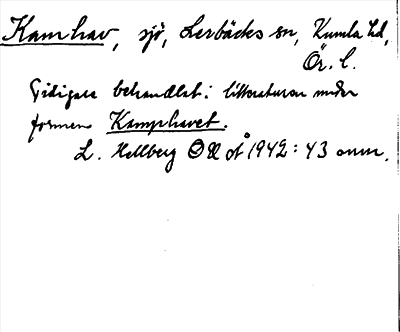 Kamhav, sjö, Lerbäcks sn, Kumla hd,
Ör. l.
Tidigare behandlat i litteraturen under
formen Kamphavet.
L. Hellberg OÅ 1942: 43 anm.